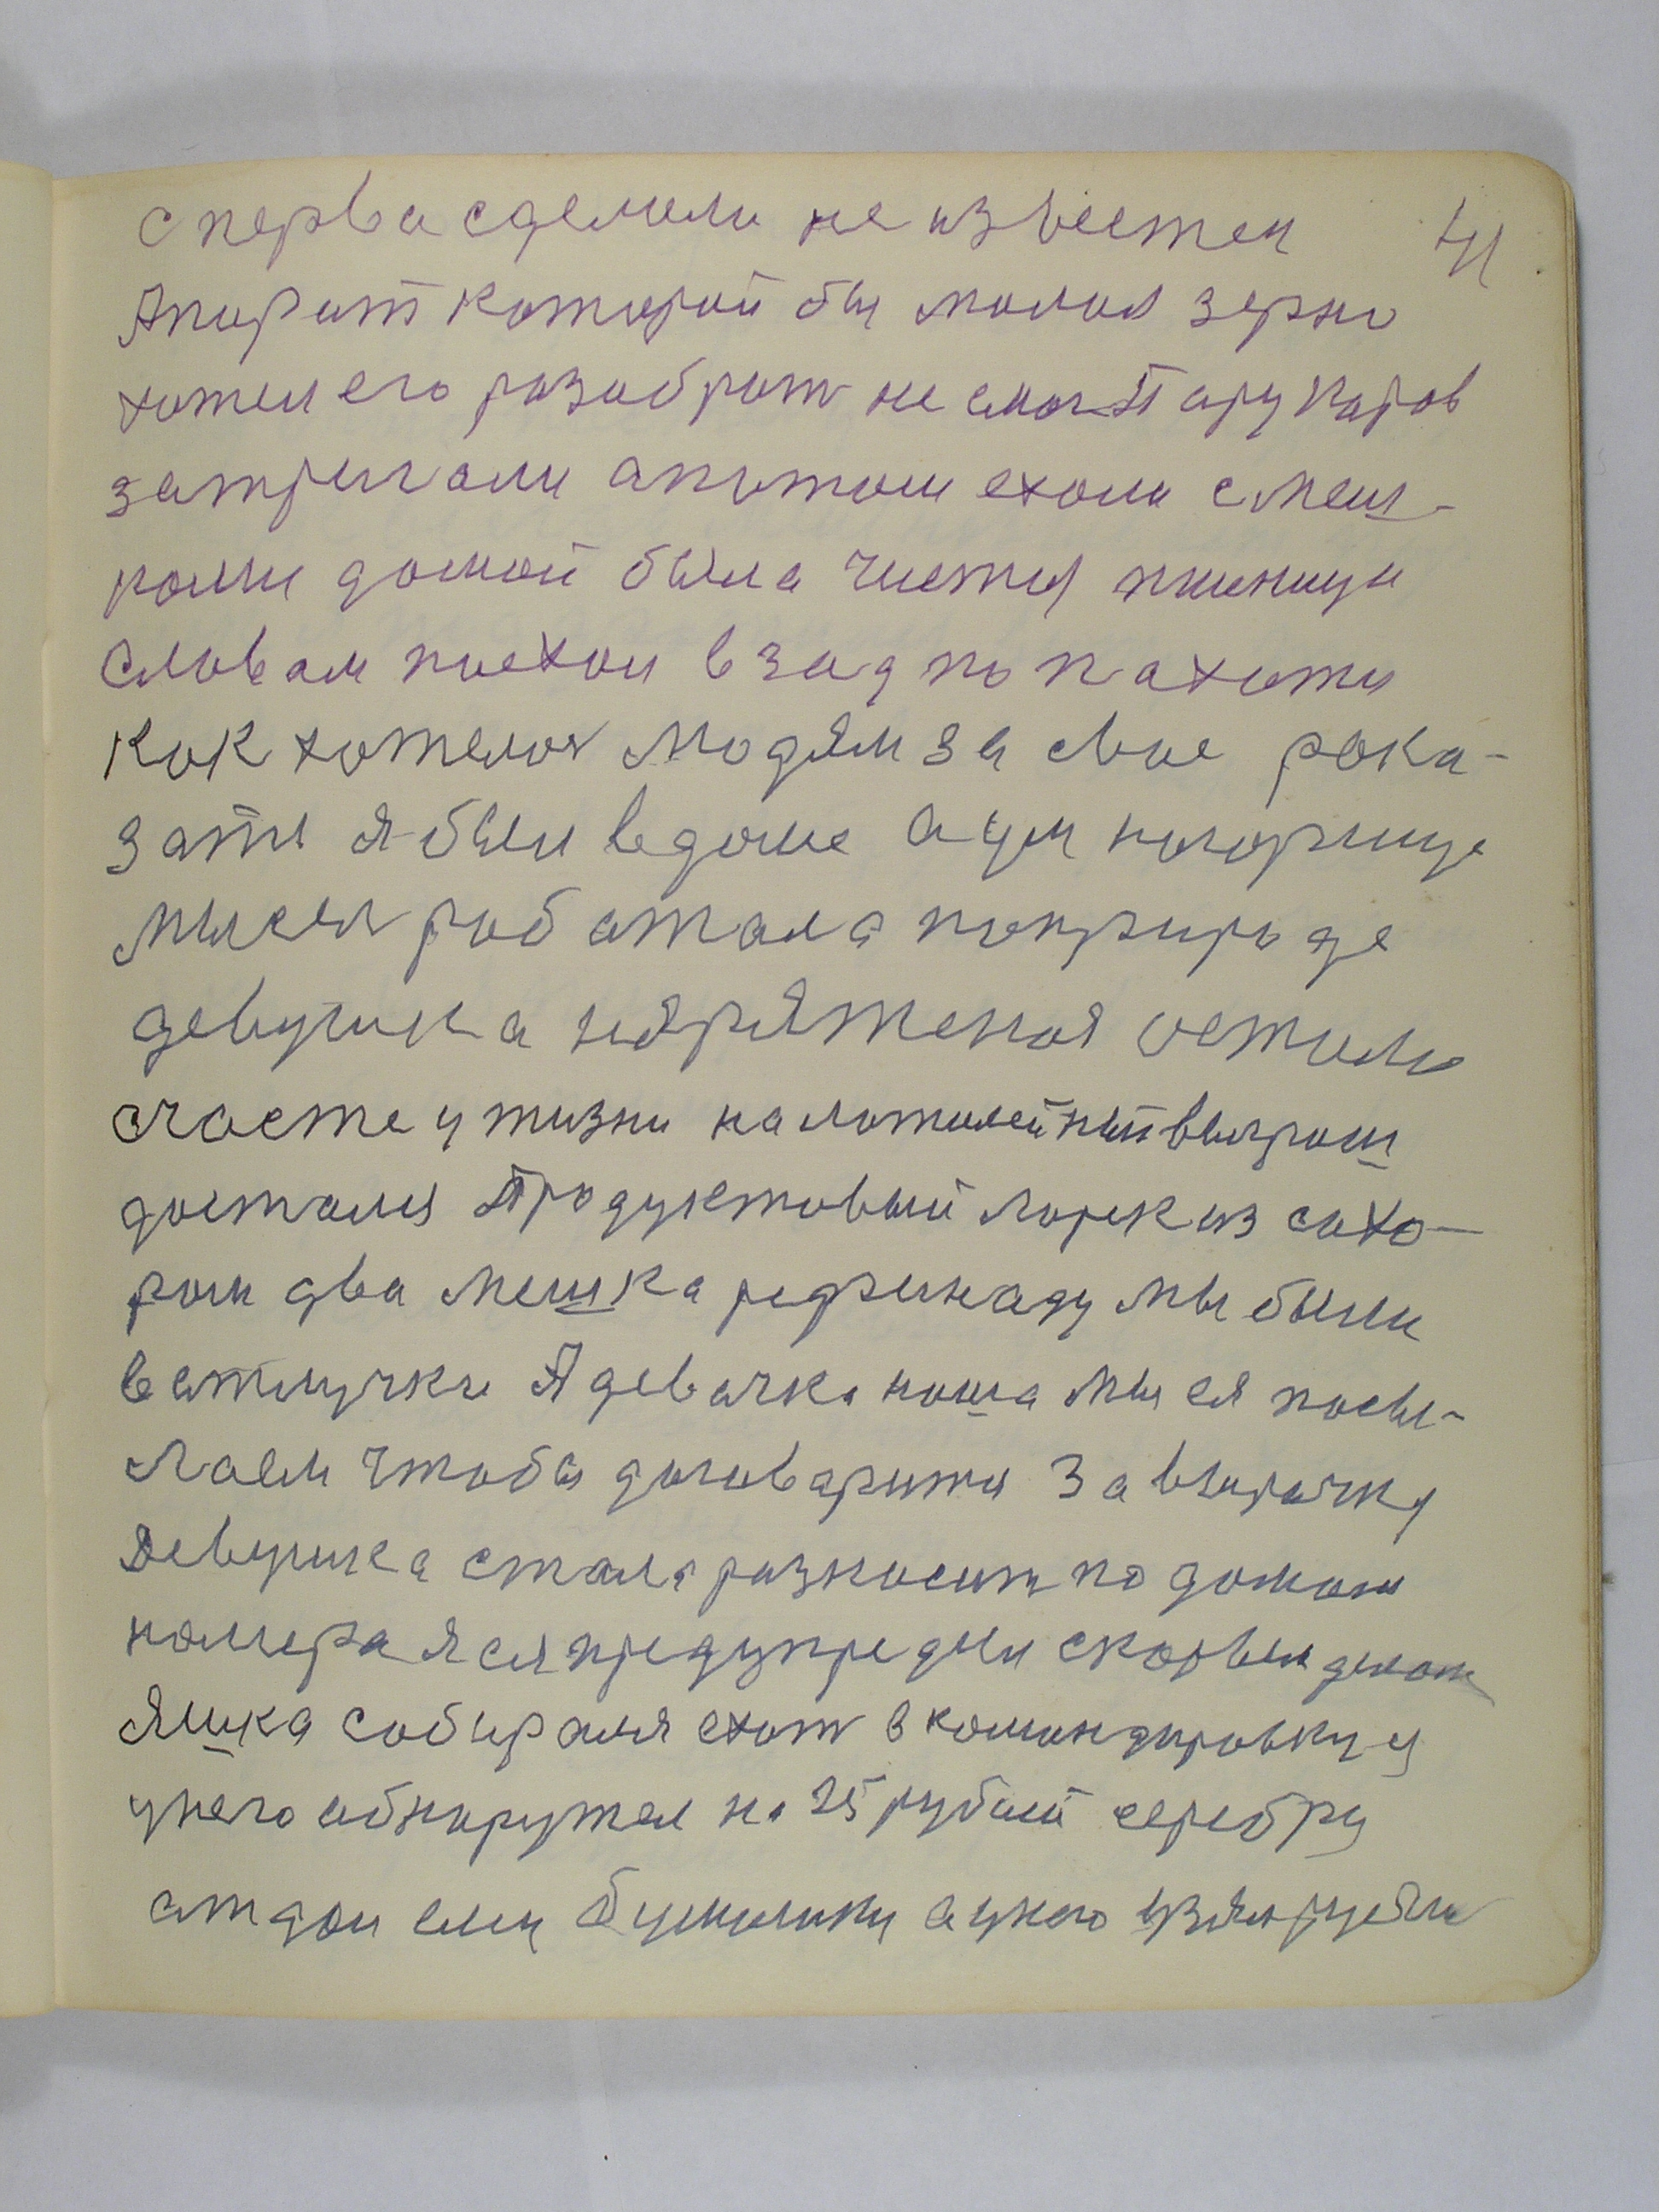 с перва сделали не известен 41
Апарат которой бы молол зерно
хотел его разобрат не смог Пару коров
запрегали апотом ехали смеш-
коми домой была чистая пшеница
Словам поехал взад по пахоти
как хотелоя людям за свое рока-
зать я был ведоме ацу погорище
мыкея работала поприроде
девушка наряженоя
счасте у жизни налотилейный выграш
досталя Продуктовый ларек из сахо-
ром два мешка рефинаду мы были
вотлучки А девачка наша мы ея посы-
лаем чтобы договарити За выручку
Девушка стала разносит по домам
номера я ея предупредил скорвы делат
Яшка собираля ехат в командировку у
унего обнаружел на 25 рублей серебру
атдал ему бумажки а унего взял рубли